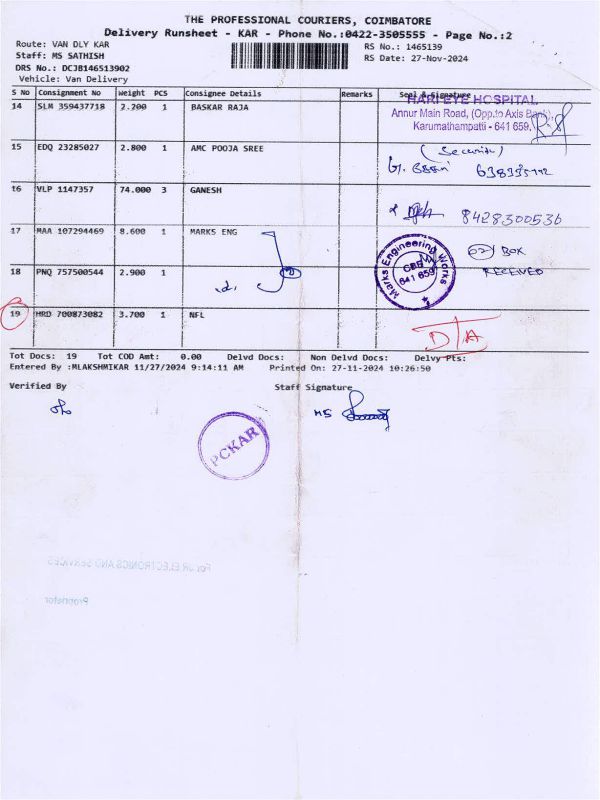 THE PROFESSIONAL COURIERS, COIMBATORE
Delivery Runsheet - KAR - Phone No.:0422-3505555 - Page No.:2
Route: VAN DLY KAR
RS No.: 1465139
Staff: MS SATHISH
RS Date: 27-Nov-2024
DRS No.: DCJB146513902
Vehicle: Van Delivery
S No Consignment No Weight PCS Consignee Details Remarks Seal & Signature
14 SLM 359437718 2.200 1 BASKAR RAJA
HARI EYE HOSPITAL
Annur Main Road, (Opp.to Axis Bank),
Karumathampatti - 641 659.
15 EDQ 23285027 2.800 1 AMC POOJA SREE
(Security)
16 VLP 1147357 74.000 3 GANESH
8428300536
17 MAA 107294469 8.600 1 MARKS ENG
Marks Engineering Works
CBE
641 659
02 BOX
RECEIVED
18 PNQ 757500544 2.900 1
19 HRD 700873082 3.700 1 NFL
D/A
Tot Docs: 19 Tot COD Amt: 0.00 Delvd Docs: Non Delvd Docs: Delvy Pts:
Entered By :MLAKSHMIKAR 11/27/2024 9:14:11 AM Printed On: 27-11-2024 10:26:50
Verified By
Staff Signature
MS
PCKAR
For JR ELECTRONICS AND SERVICES
Proprietor